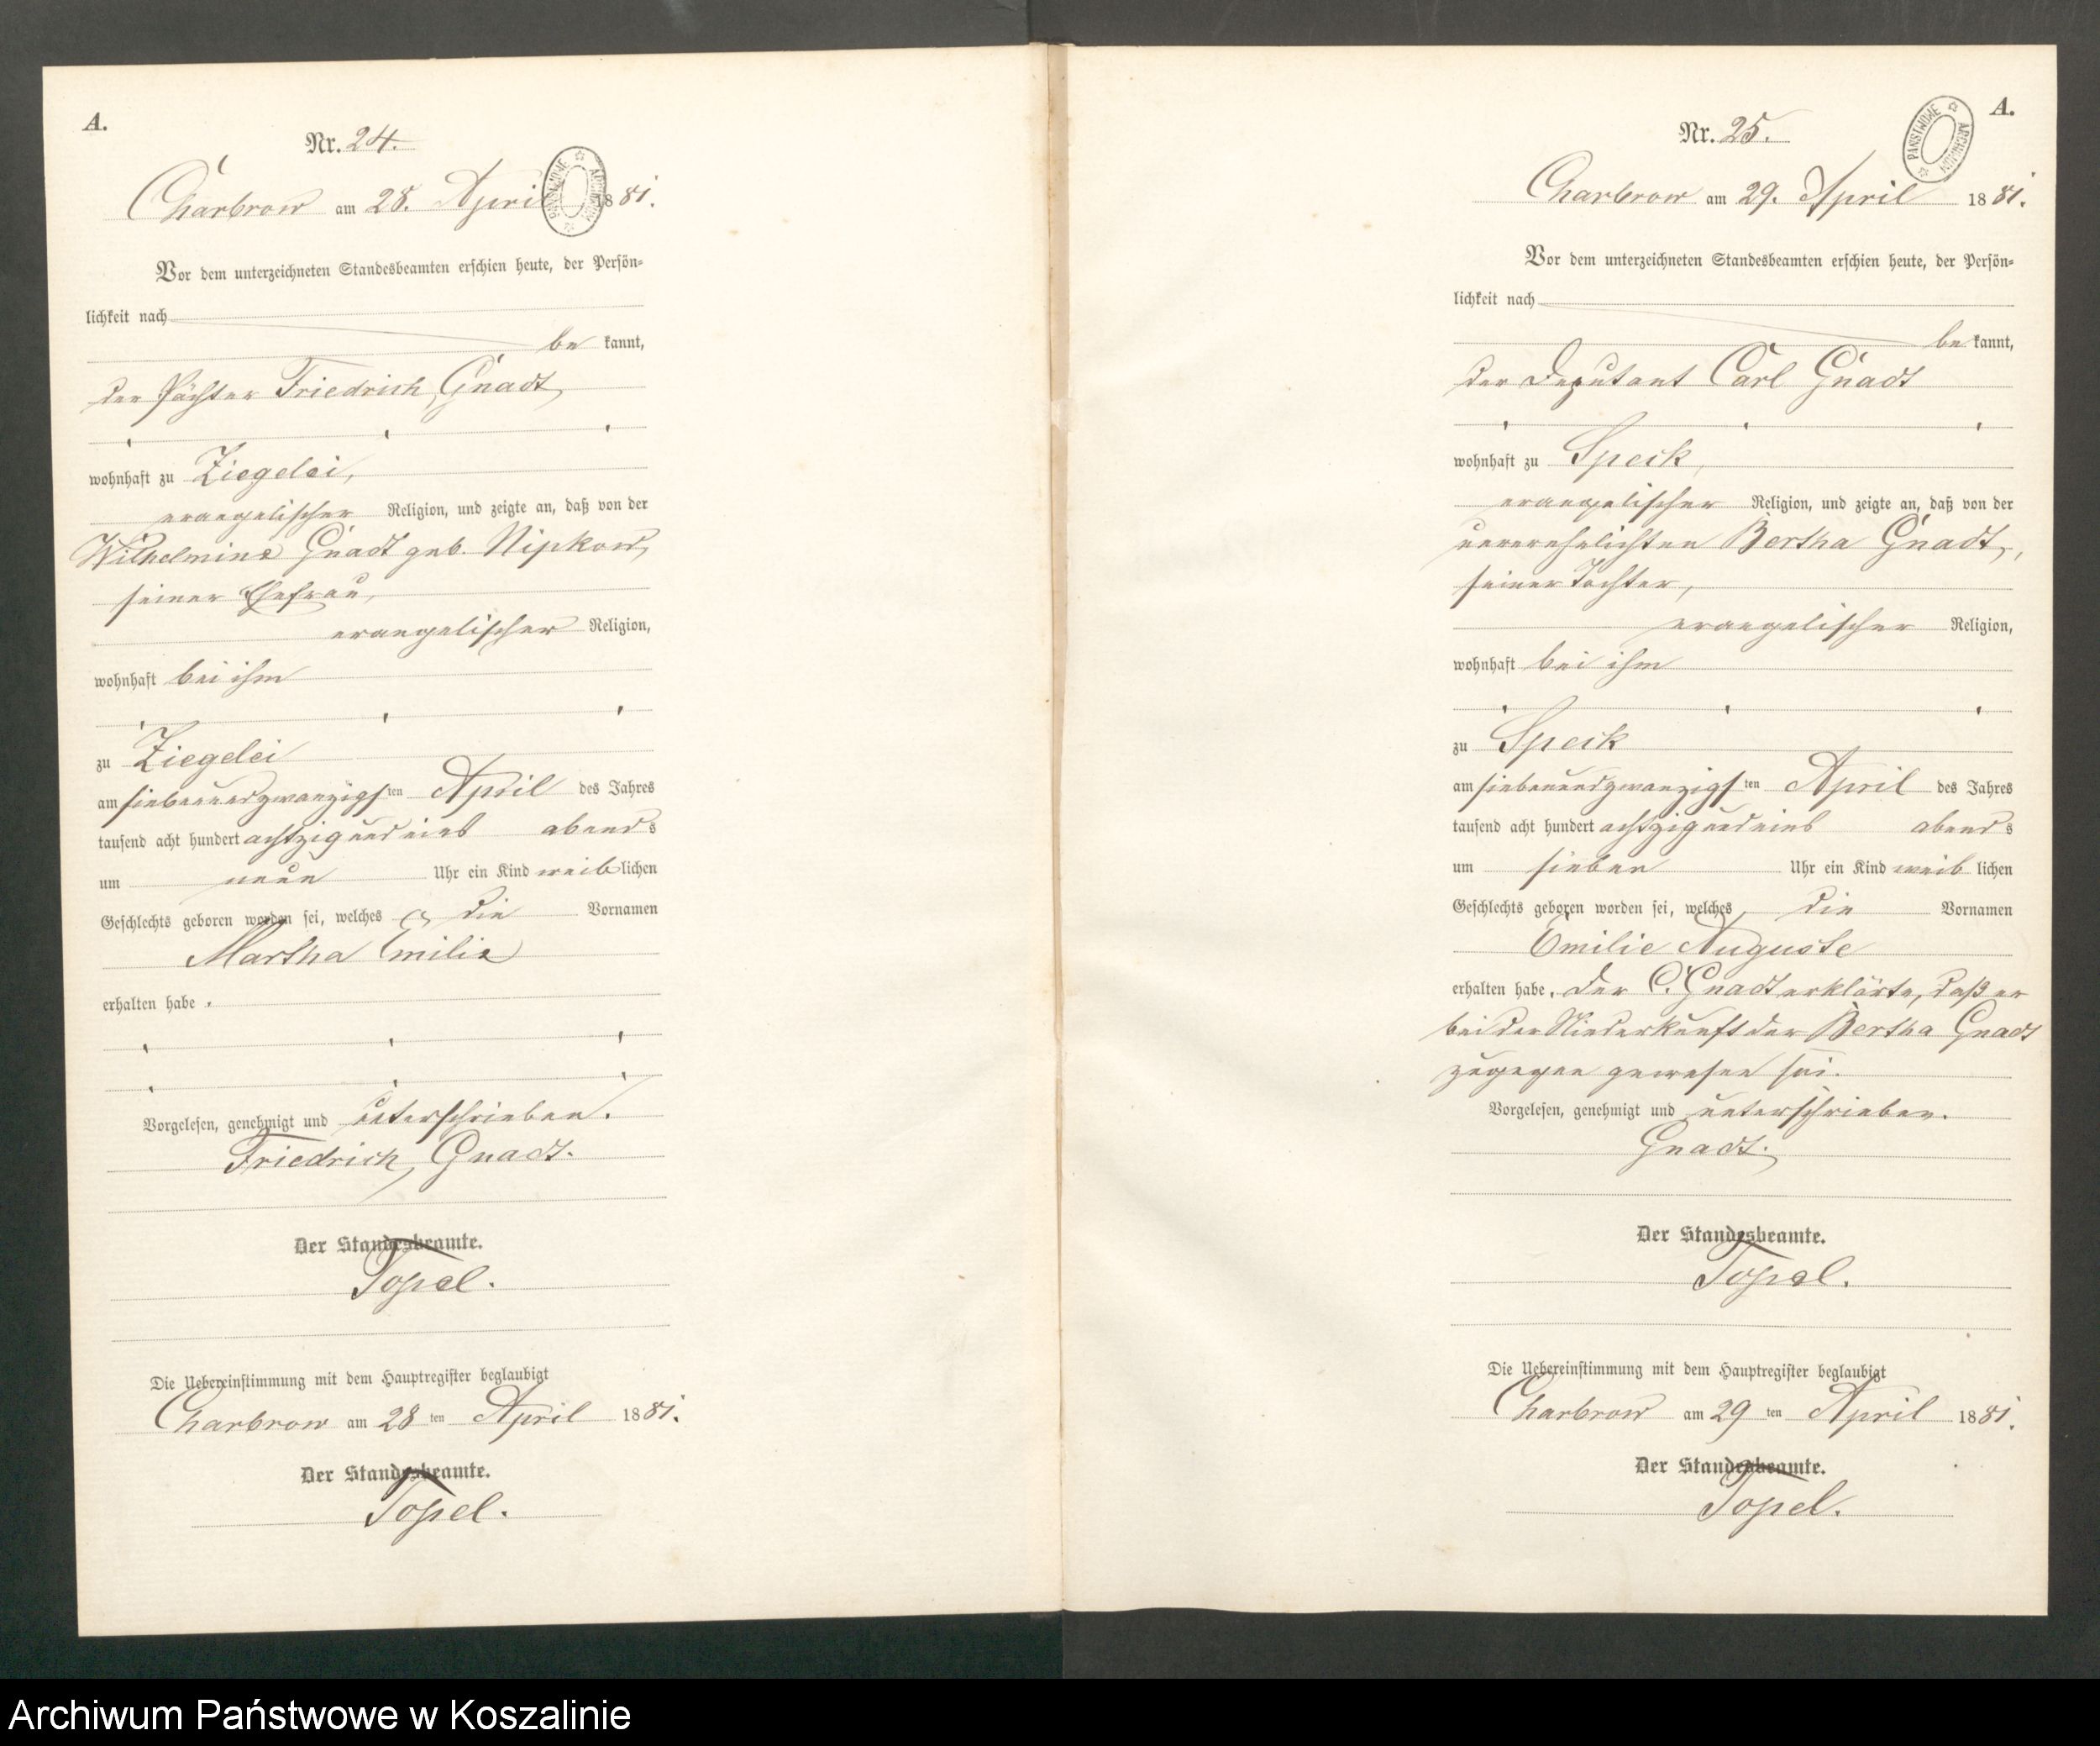 A.
Nr. 24.
Charbrow am 28. April 1881.
Vor dem unterzeichneten Standesbeamten erschien heute, der Persön-
lichkeit nach
be kannt,
der Pächter Friedrich Gnadt,
wohnhaft zu Ziegelei,
evangelischer Religion, und zeigte an, daß von der
Wilhelmine Gnadt geb. Nipkow,
seiner Ehefrau,
evangelischer Religion,
wohnhaft bei ihm
zu Ziegelei
am siebenundzwanzigsten April des Jahres
tausend acht hundert achtzig und eins abends
um neun Uhr ein Kind weiblichen
Geschlechts geboren worden sei, welches die Vornamen
Martha Emilie
erhalten habe.
Vorgelesen, genehmigt und unterschrieben.
Friedrich Gnadt.
Der Standesbeamte.
Topel.
Die Uebereinstimmung mit dem Hauptregister beglaubigt
Charbrow am 28 ten April 1881.
Der Standesbeamte.
Topel.
PAŃSTWOWE ARCHIWUM
A.
Nr. 25.
Charbrow am 29. April 1881.
Vor dem unterzeichneten Standesbeamten erschien heute, der Persön-
lichkeit nach
be kannt,
der Deputant Carl Gnadt
wohnhaft zu Speck,
evangelischer Religion, und zeigte an, daß von der
unverehelichten Bertha Gnadt,
seiner Tochter,
evangelischer Religion,
wohnhaft bei ihm
zu Speck
am siebenundzwanzigsten April des Jahres
tausend acht hundert achtzig und eins abends
um sieben Uhr ein Kind weib lichen
Geschlechts geboren worden sei, welches die Vornamen
Emilie Auguste
erhalten habe. Der C. Gnadt erklärte, daß er
bei der Niederkunft der Bertha Gnadt
zugegen gewesen sei.
Vorgelesen, genehmigt und unterschrieben.
Gnadt.
Der Standesbeamte.
Topel.
Die Uebereinstimmung mit dem Hauptregister beglaubigt
Charbrow am 29 ten April 1881.
Der Standesbeamte.
Topel.
PAŃSTWOWE ARCHIWUM
Archiwum Państwowe w Koszalinie